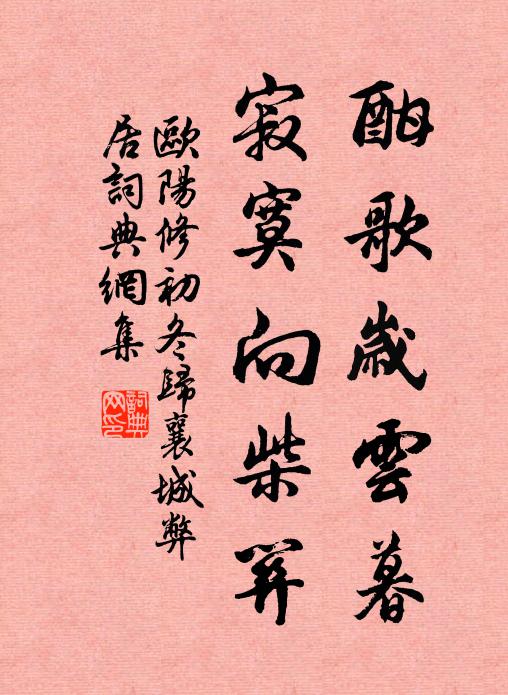 酣歌歲雲暮
寂寞向柴荓
歐陽修初冬歸襄城弊
居詞典網集
詞典
网印